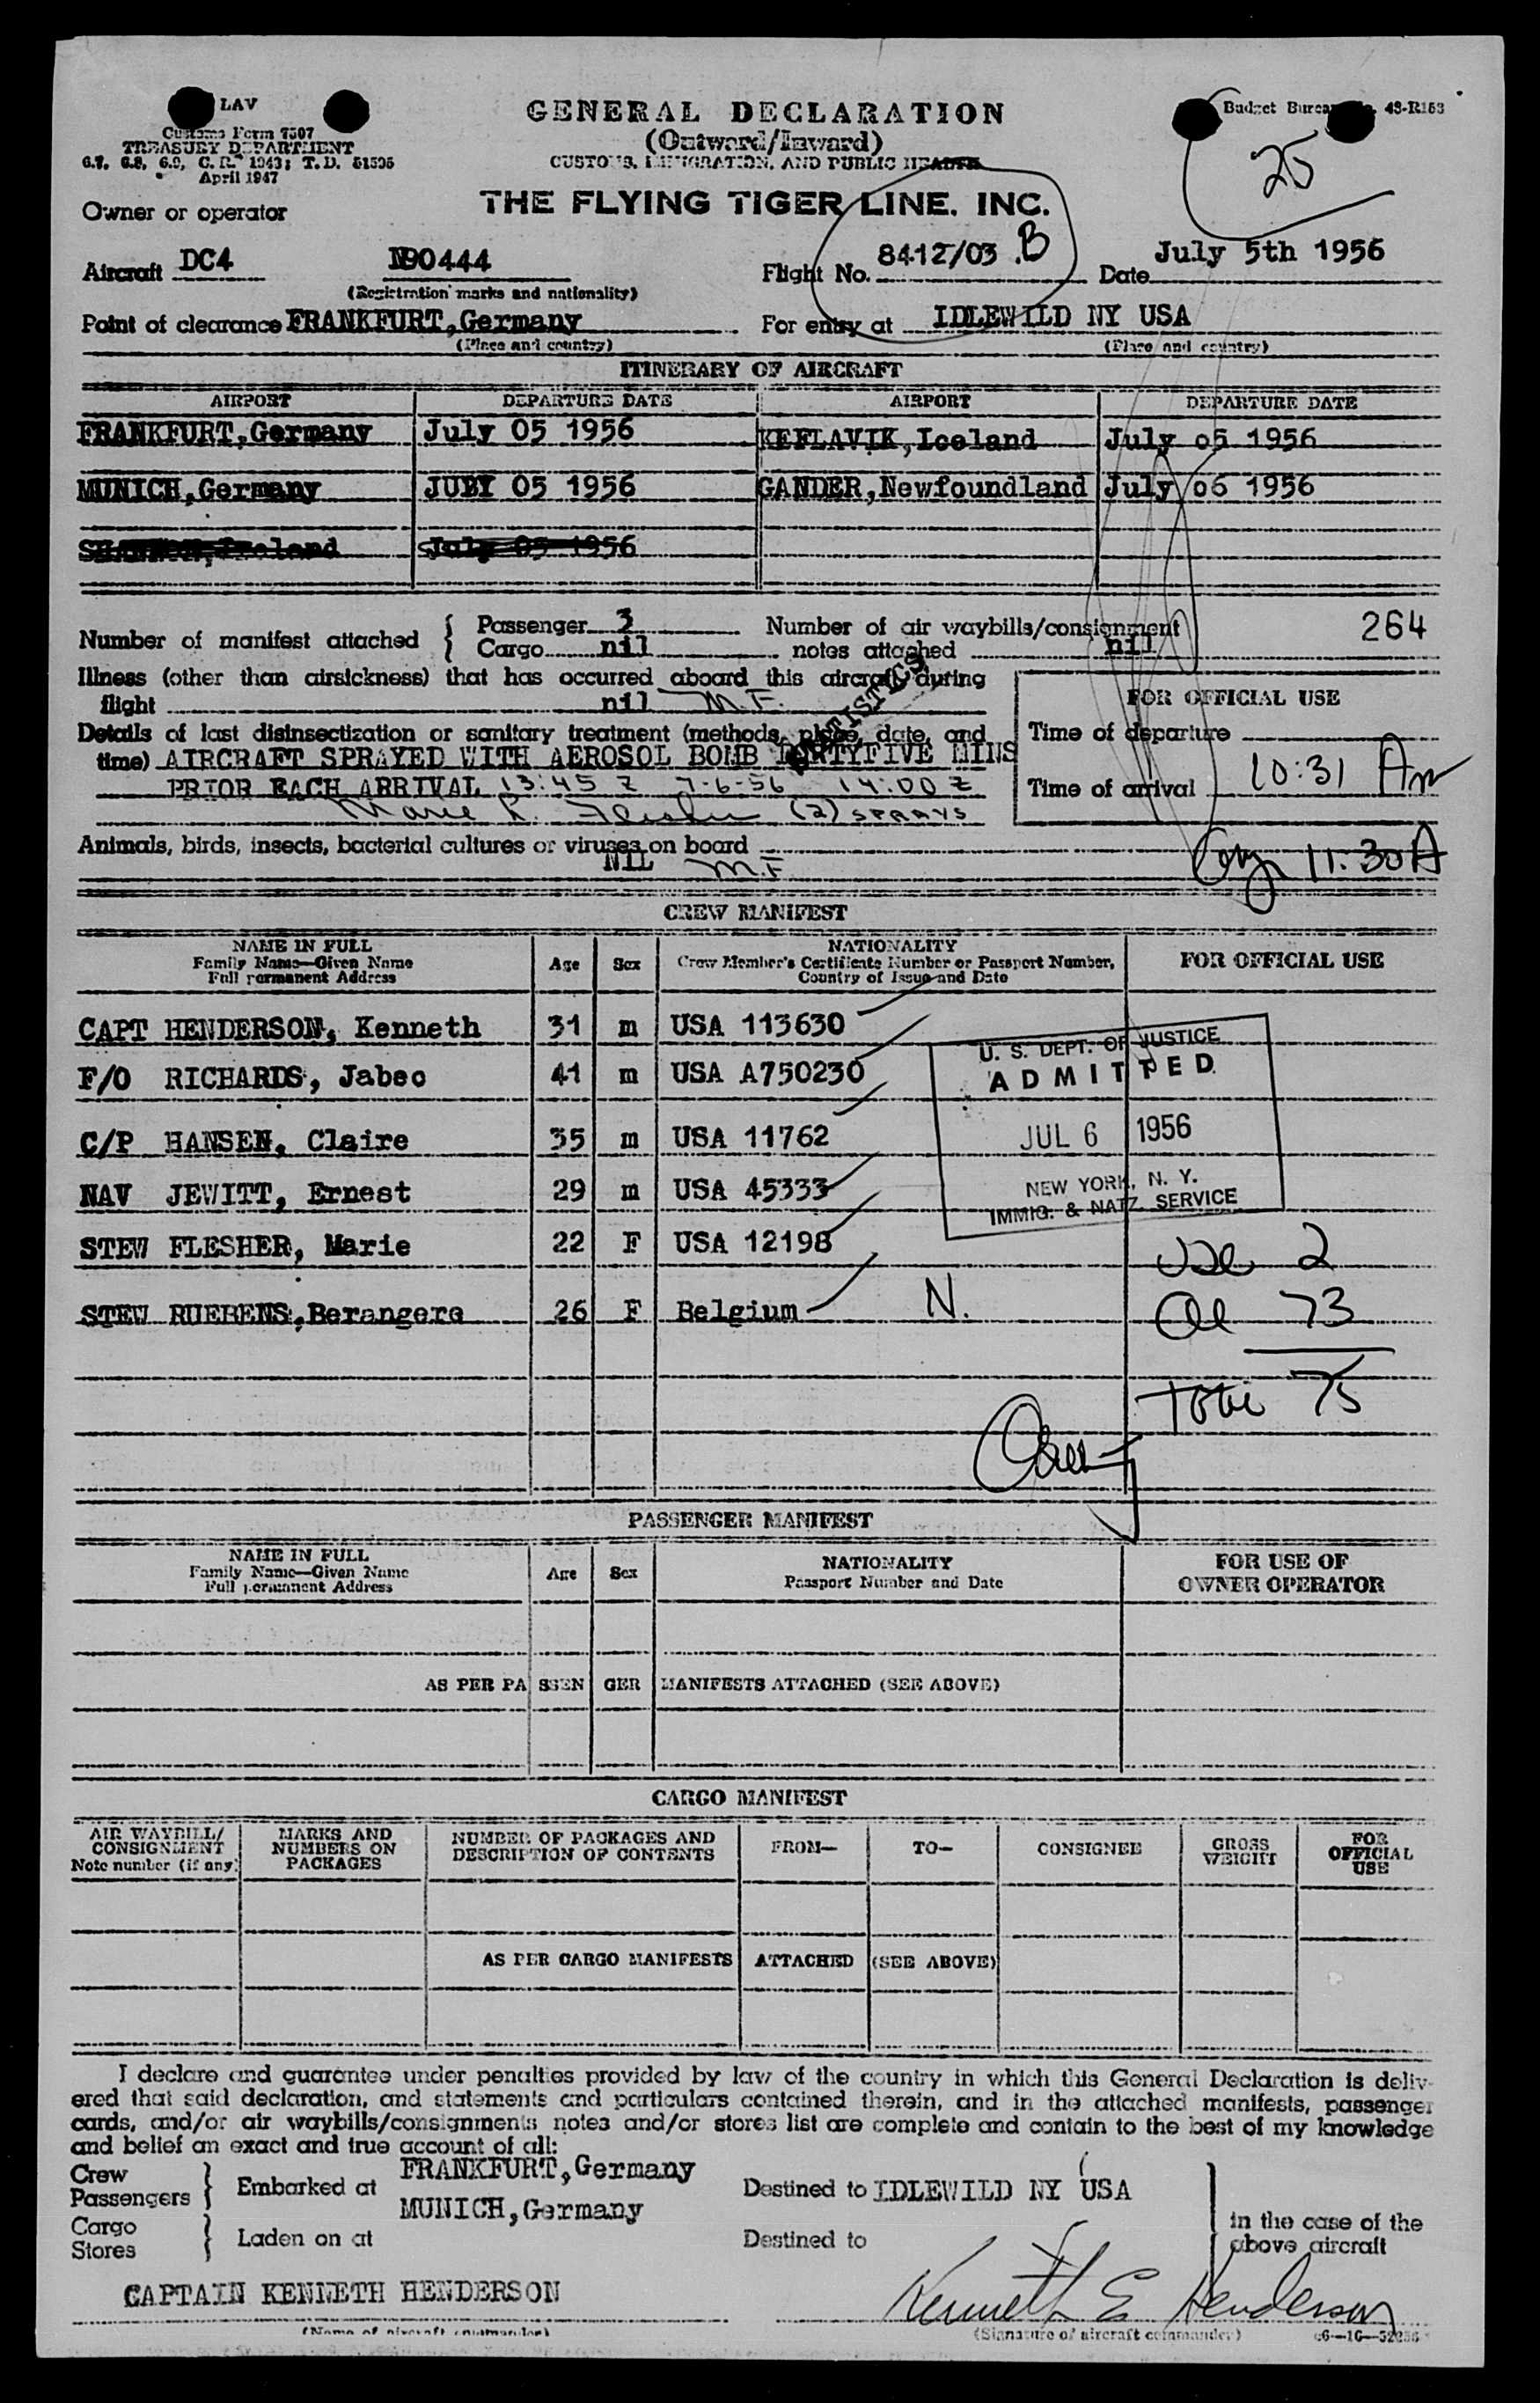 LAV
Customs Form 7507
TREASURY DEPARTMENT
6.7, 6.8, 6.9, C. R. 1943; T. D. 51505
April 1947
GENERAL DECLARATION
(Outward/Inward)
CUSTOMS, IMMIGRATION, AND PUBLIC HEALTH
Budget Bureau No. 43-R153
25
Owner or operator
THE FLYING TIGER LINE. INC.
Aircraft DC4 N90444 Flight No. 8412/03 B Date July 5th 1956
(Registration marks and nationality)
Point of clearance FRANKFURT,Germany For entry at IDLEWILD NY USA
(Place and country) (Place and country)
ITINERARY OF AIRCRAFT
AIRPORT DEPARTURE DATE AIRPORT DEPARTURE DATE
FRANKFURT,Germany July 05 1956 KEFLAVIK,Iceland July 05 1956
MUNICH,Germany JULY 05 1956 GANDER,Newfoundland July 06 1956
SHANNON,Ireland July 05 1956
Number of manifest attached { Passenger 3 Number of air waybills/consignment 264
Cargo nil notes attached nil
Illness (other than airsickness) that has occurred aboard this aircraft during
flight nil M.F.
STATISTICS
FOR OFFICIAL USE
Details of last disinsectization or sanitary treatment (methods, place, date, and
time) AIRCRAFT SPRAYED WITH AEROSOL BOMB FORTYFIVE MINS
PRIOR EACH ARRIVAL 13:45 Z 7-6-56 14:00 Z
Marie L. Flesher (2) SPRAYS
Time of departure
Time of arrival 10:31 Am
Animals, birds, insects, bacterial cultures or viruses on board
NIL M.F
11:30 A
CREW MANIFEST
NAME IN FULL
Family Name—Given Name
Full permanent Address
Age Sex
NATIONALITY
Crew Member's Certificate Number or Passport Number,
Country of Issue and Date
FOR OFFICIAL USE
CAPT HENDERSON, Kenneth 31 m USA 113630
F/O RICHARDS, Jabec 41 m USA A750230
C/P HANSEN, Claire 35 m USA 11762
NAV JEWITT, Ernest 29 m USA 45333
STEW FLESHER, Marie 22 F USA 12198
STEW RUEBENS,Berangere 26 F Belgium N.
U. S. DEPT. OF JUSTICE
ADMITTED
JUL 6 1956
NEW YORK, N. Y.
IMMIG. & NATZ. SERVICE
2
73
75
PASSENGER MANIFEST
NAME IN FULL
Family Name—Given Name
Full permanent Address
Age Sex
NATIONALITY
Passport Number and Date
FOR USE OF
OWNER OPERATOR
AS PER PASSENGER MANIFESTS ATTACHED (SEE ABOVE)
CARGO MANIFEST
AIR WAYBILL/
CONSIGNMENT
Note number (if any)
MARKS AND
NUMBERS ON
PACKAGES
NUMBER OF PACKAGES AND
DESCRIPTION OF CONTENTS
FROM—
TO—
CONSIGNEE
GROSS
WEIGHT
FOR
OFFICIAL
USE
AS PER CARGO MANIFESTS ATTACHED (SEE ABOVE)
I declare and guarantee under penalties provided by law of the country in which this General Declaration is deliv-
ered that said declaration, and statements and particulars contained therein, and in the attached manifests, passenger
cards, and/or air waybills/consignments notes and/or stores list are complete and contain to the best of my knowledge
and belief an exact and true account of all:
Crew
Passengers } Embarked at FRANKFURT,Germany
MUNICH,Germany Destined to IDLEWILD NY USA
Cargo
Stores } Laden on at Destined to
in the case of the
above aircraft
CAPTAIN KENNETH HENDERSON Kenneth E Henderson
(Name of aircraft commander) (Signature of aircraft commander)